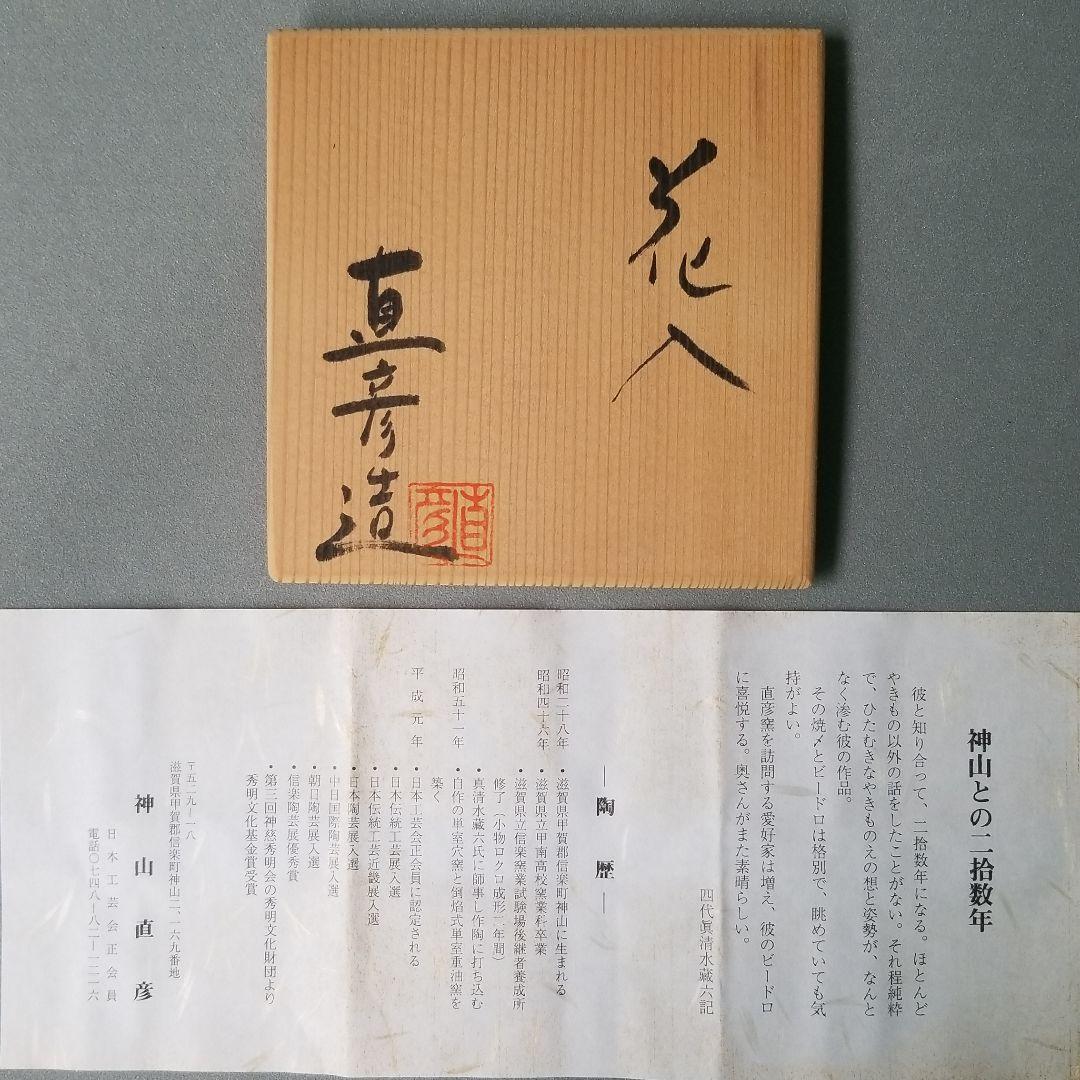 花入
直彦造
直彦
神山との二拾数年
彼と知り合って、二拾数年になる。ほとんど
やきもの以外の話をしたことがない。それ程純粋
で、ひたむきなやきものえの想と姿勢が、なんと
なく滲む彼の作品。
その焼〆とビードロは格別で、眺めていても気
持がよい。
直彦窯を訪問する愛好家は増え、彼のビードロ
に喜悦する。奥さんがまた素晴らしい。
四代眞清水藏六記
―陶歴―
昭和二十八年 ・滋賀県甲賀郡信楽町神山に生まれる
昭和四十六年 ・滋賀県立甲南高校窯業科卒業
・滋賀県立信楽窯業試験場後継者養成所
修了（小物ロクロ成形二年間）
・真清水蔵六氏に師事し作陶に打ち込む
昭和五十一年 ・自作の単室穴窯と倒焰式単室重油窯を
築く
平成元年 ・日本工芸会正会員に認定される
・日本伝統工芸展入選
・日本伝統工芸近畿展入選
・日本陶芸展入選
・中日国際陶芸展入選
・朝日陶芸展入選
・信楽陶芸展優秀賞
・第三回神慈秀明会の秀明文化財団より
秀明文化基金賞受賞
〒五二九―一八
滋賀県甲賀郡信楽町神山二、一六九番地
神山直彦
日本工芸会正会員
電話〇七四八―八二―一二一六